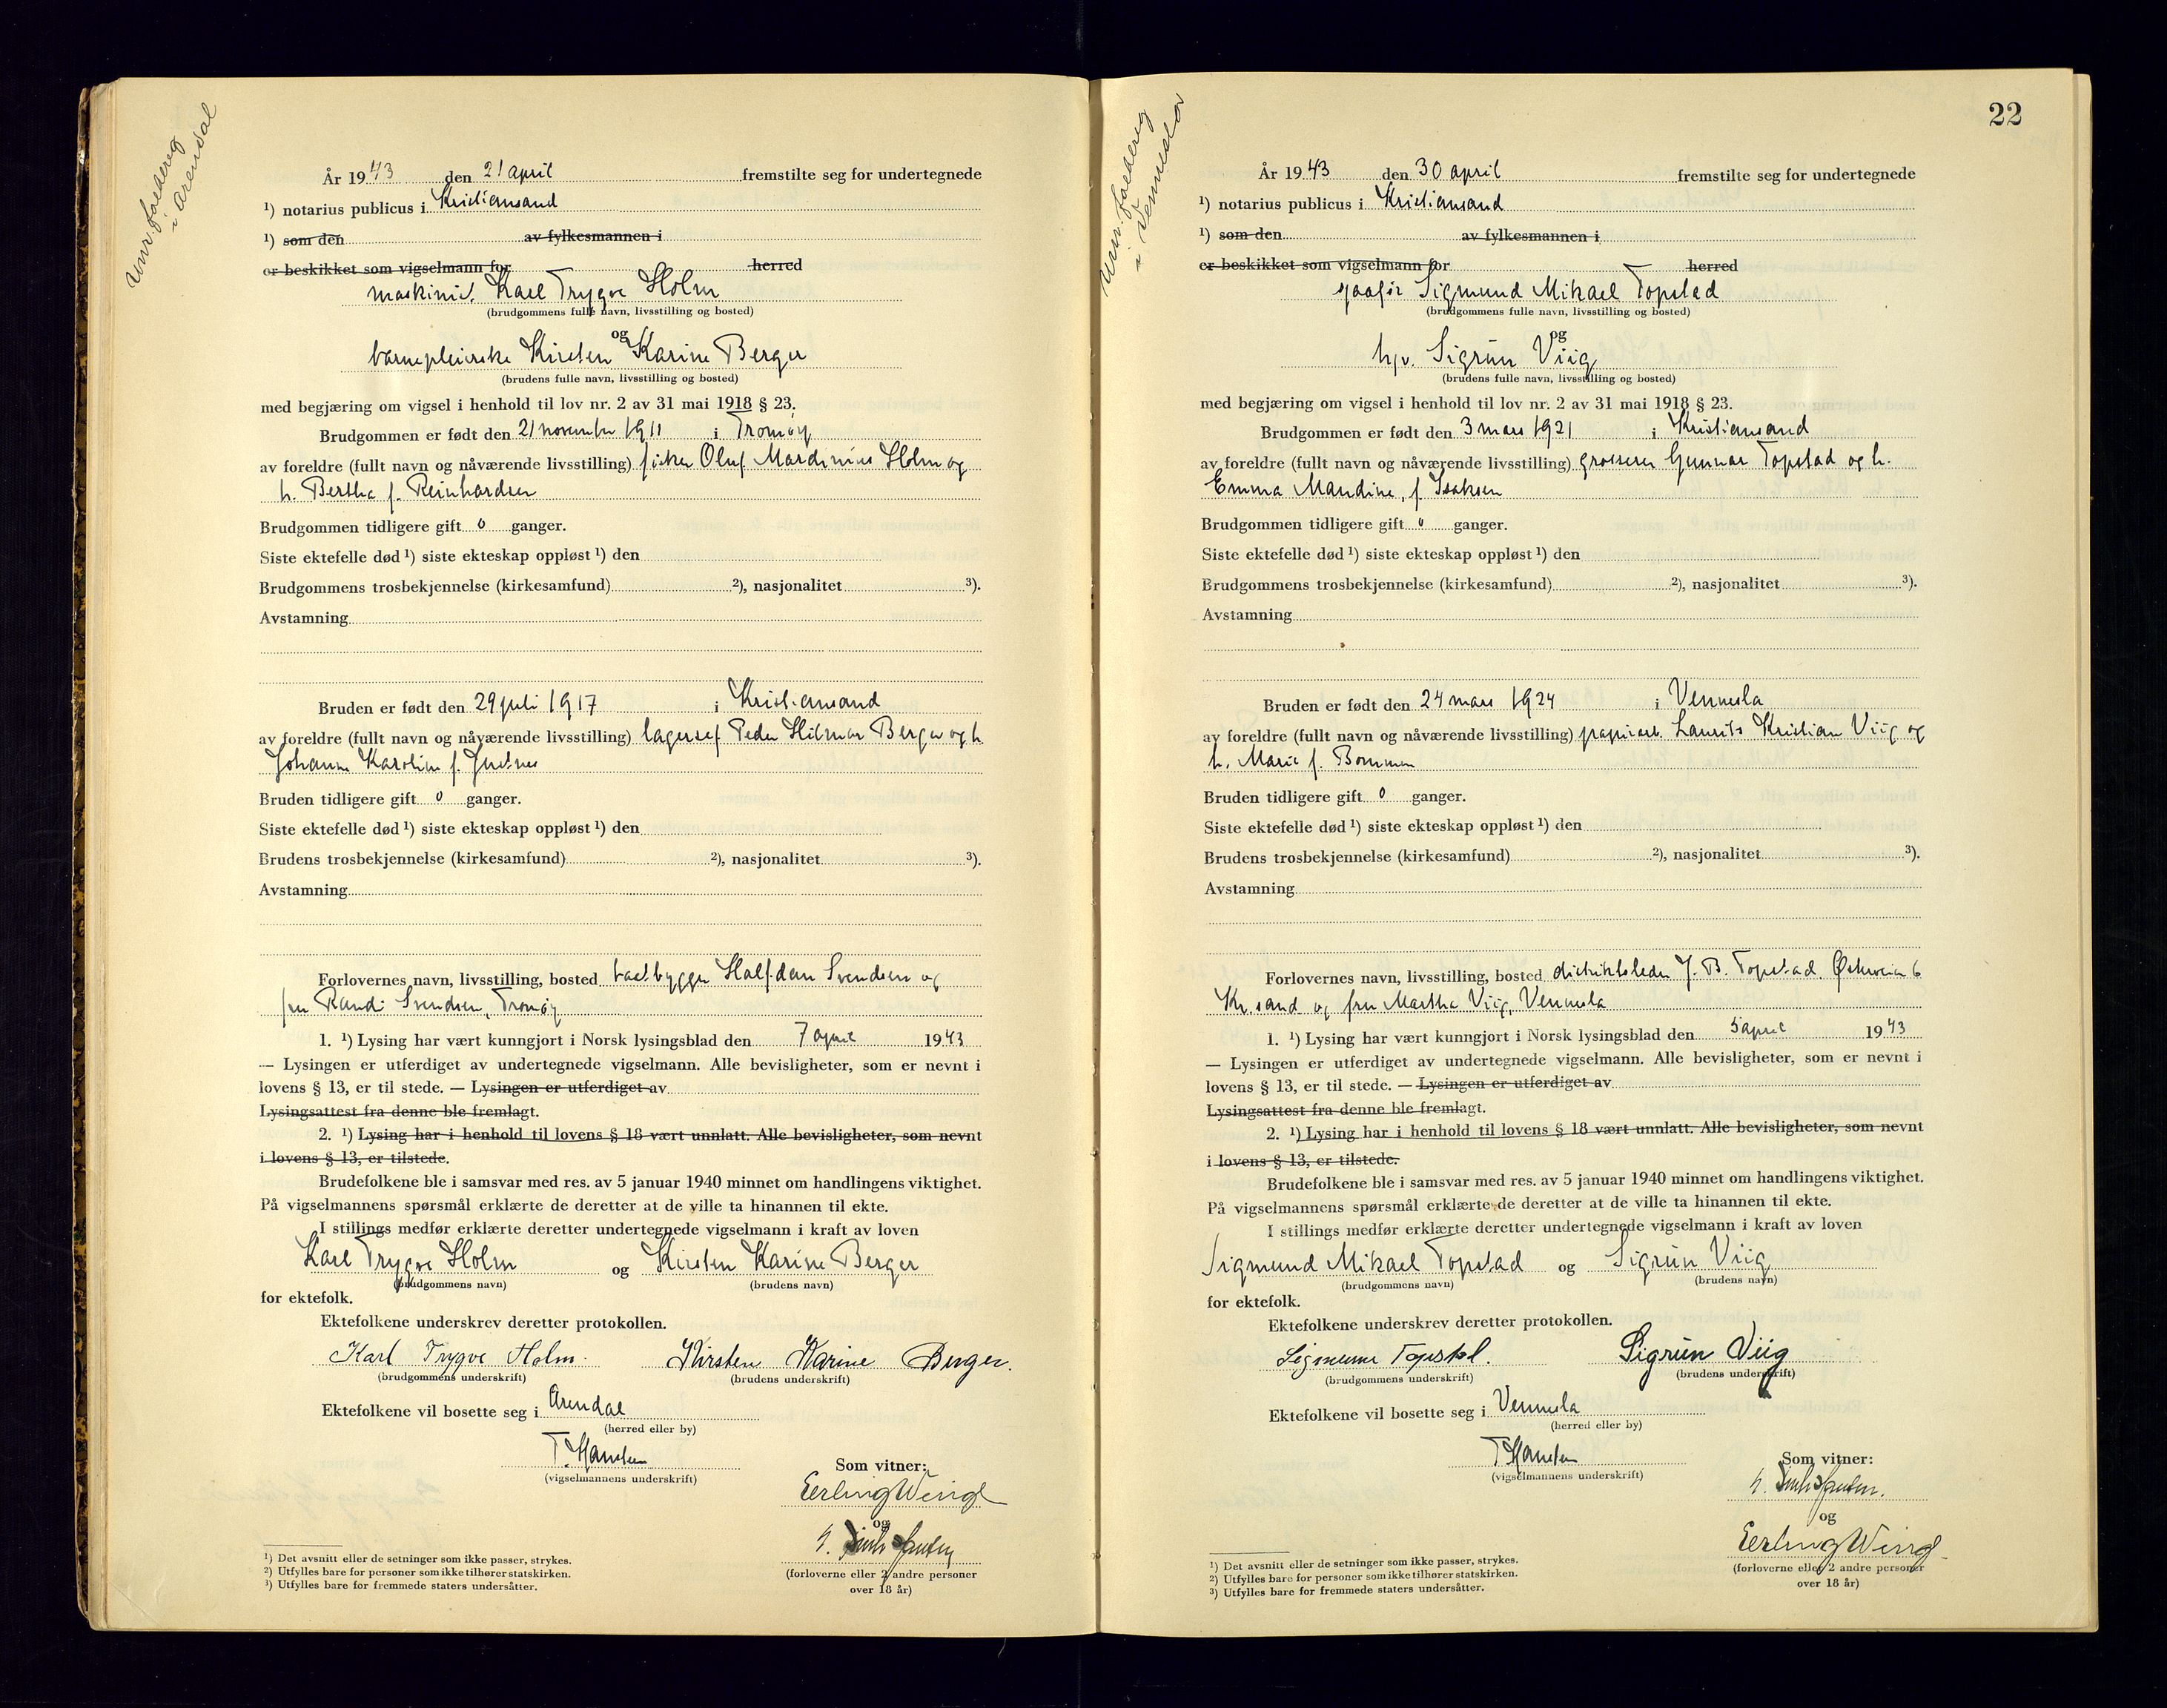 i Arendal
År 1943 den 21 april fremstilte seg for undertegnede
¹) notarius publicus i Kristiansand
¹) som den av fylkesmannen i
er beskikket som vigselmann for herred
maskinist Karl Trygve Holm
(brudgommens fulle navn, livsstilling og bosted)
og
barnepleierske Kirsten Karine Berger
(brudens fulle navn, livsstilling og bosted)
med begjæring om vigsel i henhold til lov nr. 2 av 31 mai 1918 § 23.
Brudgommen er født den 21 november 1911 i Tromøy
av foreldre (fullt navn og nåværende livsstilling) fisker Oluf Mardinius Holm og
h. Bertha f. Reinhardsen
Brudgommen tidligere gift 0 ganger.
Siste ektefelle død ¹) siste ekteskap oppløst ¹) den
Brudgommens trosbekjennelse (kirkesamfund) ²), nasjonalitet ³).
Avstamning
Bruden er født den 29 juli 1917 i Kristiansand
av foreldre (fullt navn og nåværende livsstilling) lagersjef Peder Hilmar Berger og h.
Johanne Karoline f. Justnes
Bruden tidligere gift 0 ganger.
Siste ektefelle død ¹) siste ekteskap oppløst ¹) den
Brudens trosbekjennelse (kirkesamfund) ²), nasjonalitet ³).
Avstamning
Forlovernes navn, livsstilling, bosted båtbygger Halfdan Svendsen og
fru Randi Svendsen, Tromøy
1. ¹) Lysing har vært kunngjort i Norsk lysingsblad den 7 april 1943
— Lysingen er utferdiget av undertegnede vigselmann. Alle bevisligheter, som er nevnt i
lovens § 13, er til stede. — Lysingen er utferdiget av
Lysingsattest fra denne ble fremlagt.
2. ¹) Lysing har i henhold til lovens § 18 vært unnlatt. Alle bevisligheter, som nevnt
i lovens § 13, er tilstede.
Brudefolkene ble i samsvar med res. av 5 januar 1940 minnet om handlingens viktighet.
På vigselmannens spørsmål erklærte de deretter at de ville ta hinannen til ekte.
I stillings medfør erklærte deretter undertegnede vigselmann i kraft av loven
Karl Trygve Holm og Kirsten Karine Berger
(brudgommens navn) (brudens navn)
for ektefolk.
Ektefolkene underskrev deretter protokollen.
Karl Trygve Holm. Kirsten Karine Berger.
(brudgommens underskrift) (brudens underskrift)
Ektefolkene vil bosette seg i Arendal
(herred eller by)
T. Hansen
(vigselmannens underskrift)
Som vitner:
Erling Wingl
og
(forloverne eller 2 andre personer
over 18 år)
¹) Det avsnitt eller de setninger som ikke passer, strykes.
²) Utfylles bare for personer som ikke tilhører statskirken.
³) Utfylles bare for fremmede staters undersåtter.
22
i Vennesla
År 1943 den 30 april fremstilte seg for undertegnede
¹) notarius publicus i Kristiansand
¹) som den av fylkesmannen i
er beskikket som vigselmann for herred
sjåfør Sigmund Mikael Topstad
(brudgommens fulle navn, livsstilling og bosted)
og
hjv. Sigrun Viig
(brudens fulle navn, livsstilling og bosted)
med begjæring om vigsel i henhold til lov nr. 2 av 31 mai 1918 § 23.
Brudgommen er født den 3 mars 1921 i Kristiansand
av foreldre (fullt navn og nåværende livsstilling) grosserer Gunnar Topstad og h.
Emma Mandine, f. Isaksen
Brudgommen tidligere gift 0 ganger.
Siste ektefelle død ¹) siste ekteskap oppløst ¹) den
Brudgommens trosbekjennelse (kirkesamfund) ²), nasjonalitet ³).
Avstamning
Bruden er født den 24 mars 1924 i Vennesla
av foreldre (fullt navn og nåværende livsstilling) papirarb. Laurits Kristian Viig og
h. Marie f. Bommen
Bruden tidligere gift 0 ganger.
Siste ektefelle død ¹) siste ekteskap oppløst ¹) den
Brudens trosbekjennelse (kirkesamfund) ²), nasjonalitet ³).
Avstamning
Forlovernes navn, livsstilling, bosted distriktsleder J. B. Topstad. Østerveien 6
Kr.sand og fru Martha Viig, Vennesla
1. ¹) Lysing har vært kunngjort i Norsk lysingsblad den 5 april 1943
— Lysingen er utferdiget av undertegnede vigselmann. Alle bevisligheter, som er nevnt i
lovens § 13, er til stede. — Lysingen er utferdiget av
Lysingsattest fra denne ble fremlagt.
2. ¹) Lysing har i henhold til lovens § 18 vært unnlatt. Alle bevisligheter, som nevnt
i lovens § 13, er tilstede.
Brudefolkene ble i samsvar med res. av 5 januar 1940 minnet om handlingens viktighet.
På vigselmannens spørsmål erklærte de deretter at de ville ta hinannen til ekte.
I stillings medfør erklærte deretter undertegnede vigselmann i kraft av loven
Sigmund Mikael Topstad og Sigrun Viig
(brudgommens navn) (brudens navn)
for ektefolk.
Ektefolkene underskrev deretter protokollen.
Sigmund Topstad. Sigrun Viig
(brudgommens underskrift) (brudens underskrift)
Ektefolkene vil bosette seg i Vennesla
(herred eller by)
T. Hansen
(vigselmannens underskrift)
Som vitner:
og
Erling Wingl
(forloverne eller 2 andre personer
over 18 år)
¹) Det avsnitt eller de setninger som ikke passer, strykes.
²) Utfylles bare for personer som ikke tilhører statskirken.
³) Utfylles bare for fremmede staters undersåtter.